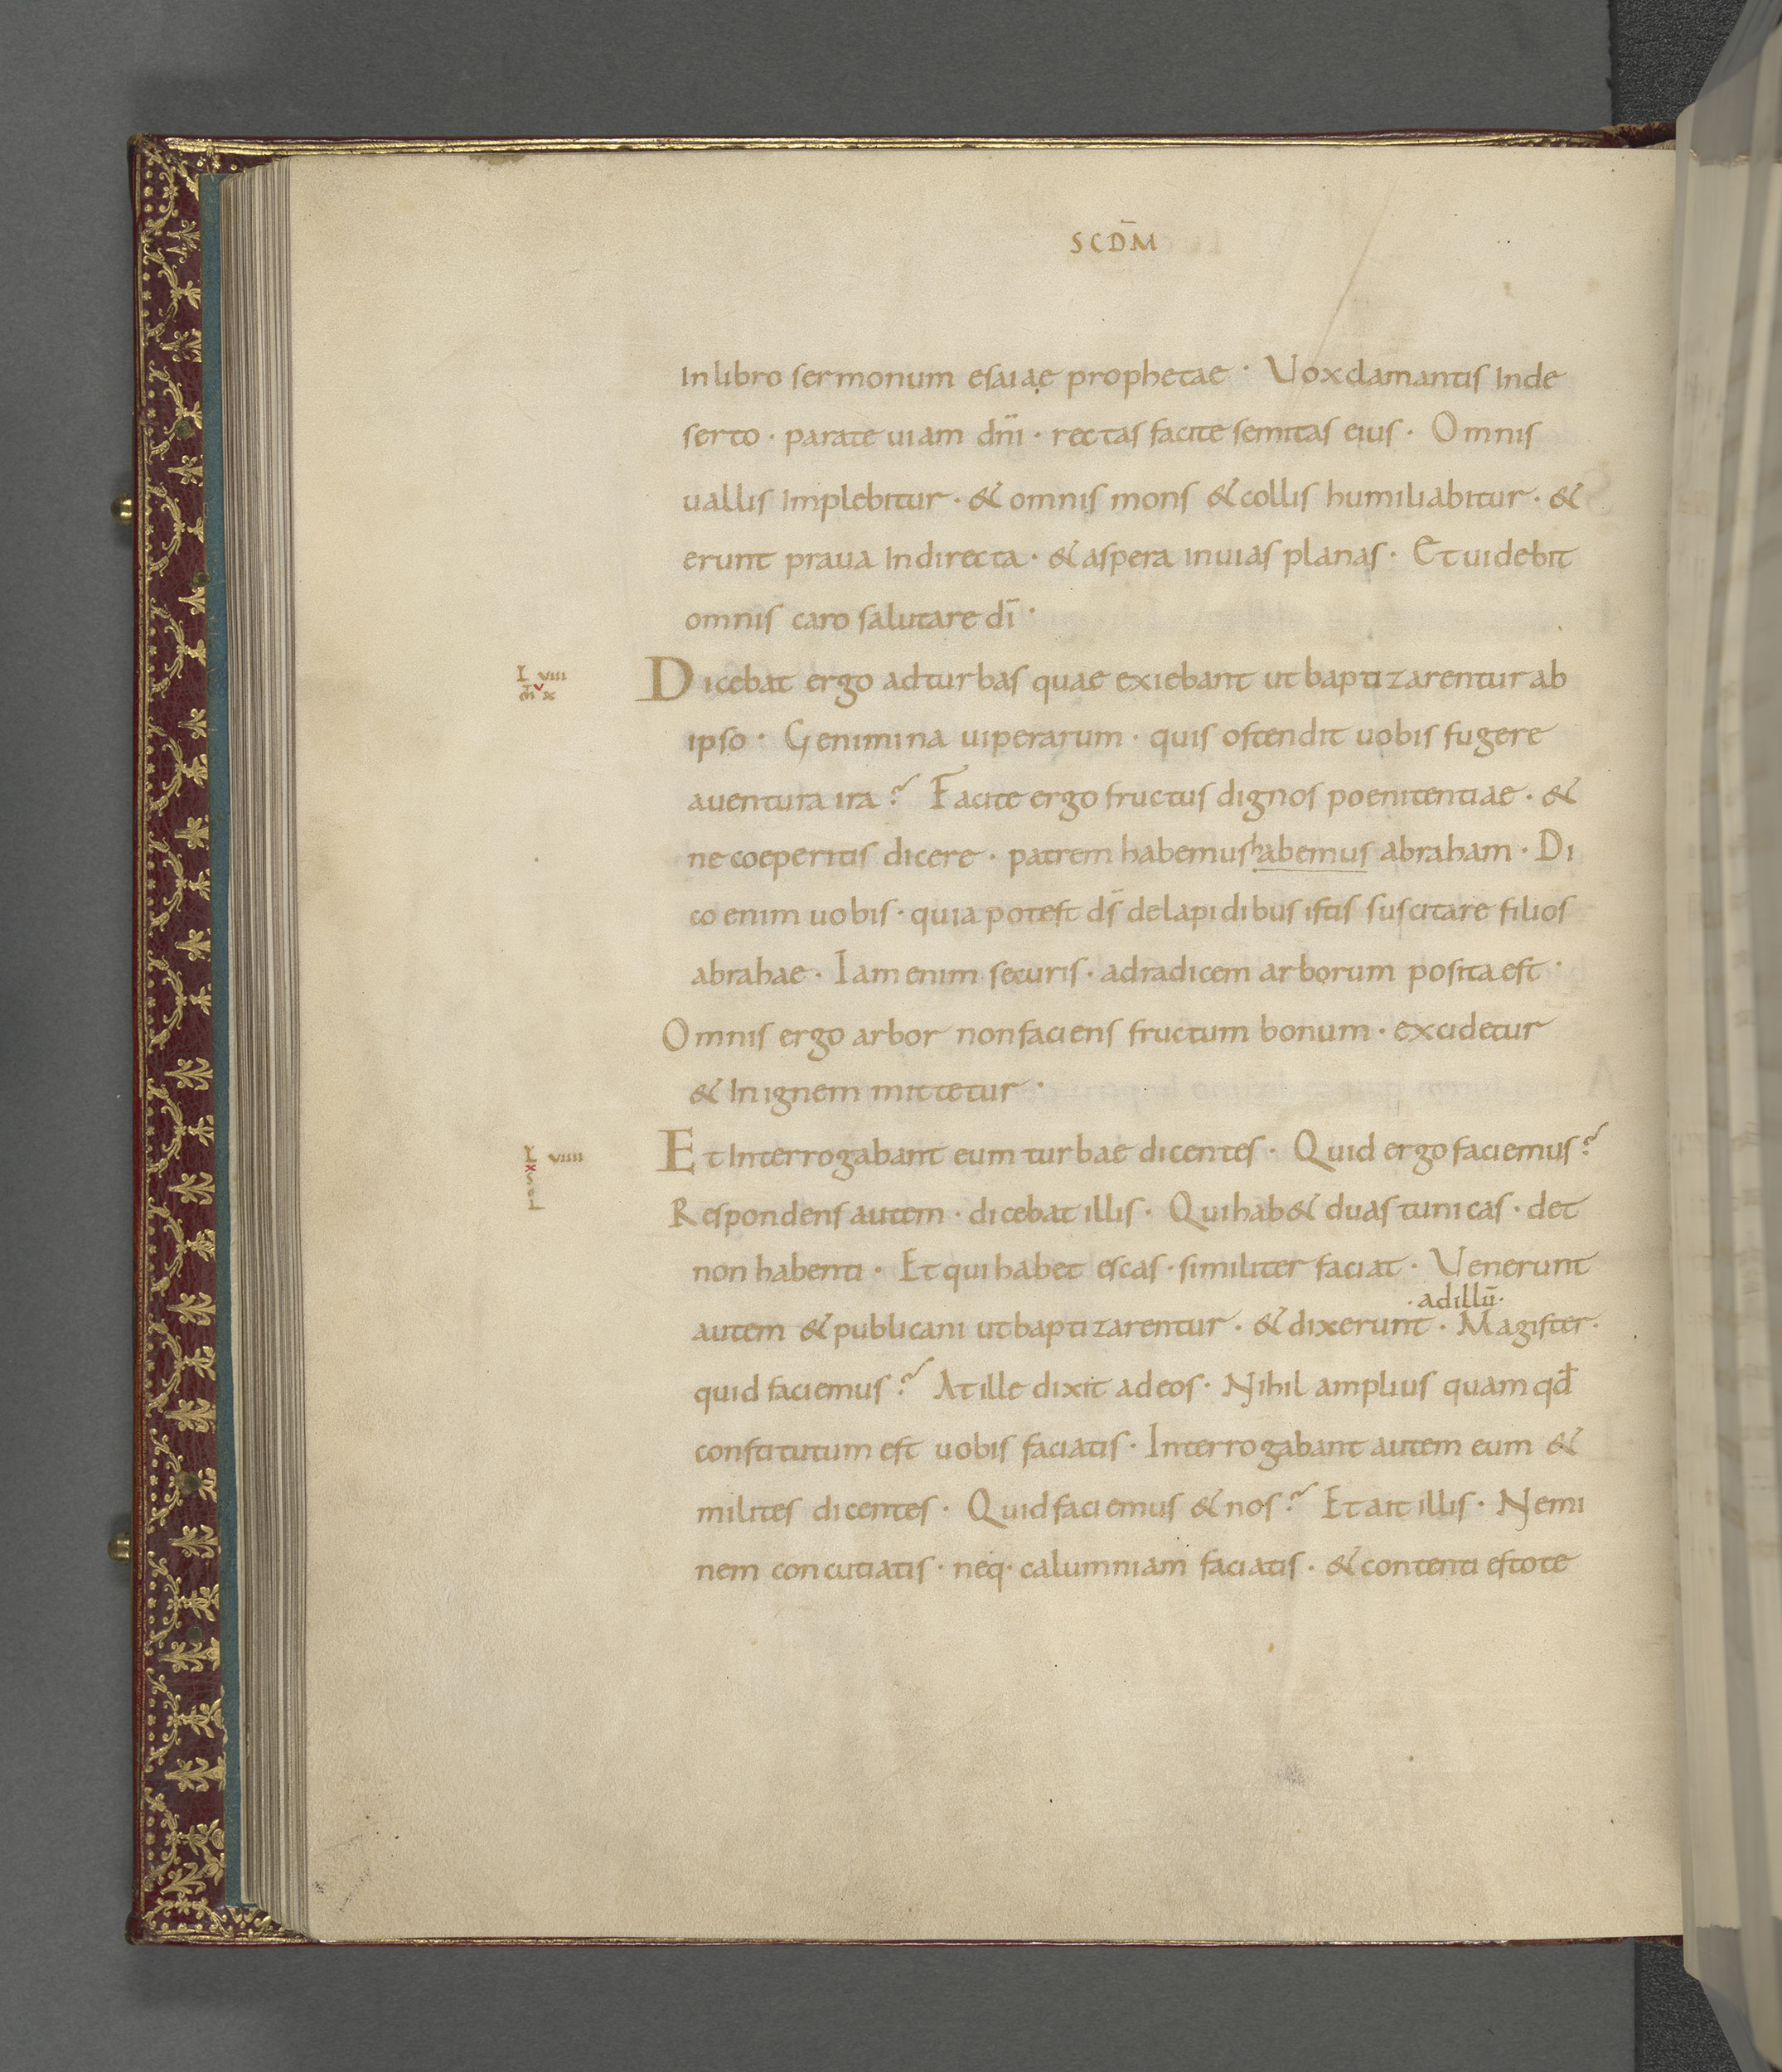 SCD̄M
In libro sermonum esaiae prophetae · Vox clamantis In de
serto · parate uiam dn̄i · rectas facite semitas eius · Omnis
uallis Implebitur · & omnis mons & collis humiliabitur · &
erunt praua In directa · & aspera in uias planas · Et uidebit
omnis caro salutare dī ·
L VIII
Dicebat ergo ad turbas quae exiebant ut baptizarentur ab
ipso · Genimina uiperarum · quis ostendit uobis fugere
a uentura ira? Facite ergo fructus dignos poenitentiae · &
ne coeperitis dicere · patrem habemus habemus abraham · Di
co enim uobis · quia potest ds̄ de lapidibus istis suscitare filios
abrahae · Iam enim securis · ad radicem arborum posita est ·
Omnis ergo arbor non faciens fructum bonum · excidetur
& In ignem mittetur ·
L VIIII
Et Interrogabant eum turbae dicentes · Quid ergo faciemus?
Respondens autem · dicebat illis · Qui hab& duas tunicas · det
non habenti · Et qui habet escas · similiter faciat · Venerunt
· ad illū ·
autem & publicani ut baptizarentur · & dixerunt · Magister ·
quid faciemus? At ille dixit ad eos · Nihil amplius quam qđ
constitutum est uobis faciatis · Interrogabant autem eum &
milites dicentes · Quid faciemus & nos? Et ait illis · Nemi
nem concutiatis · neq· calumniam faciatis · & contenti estote